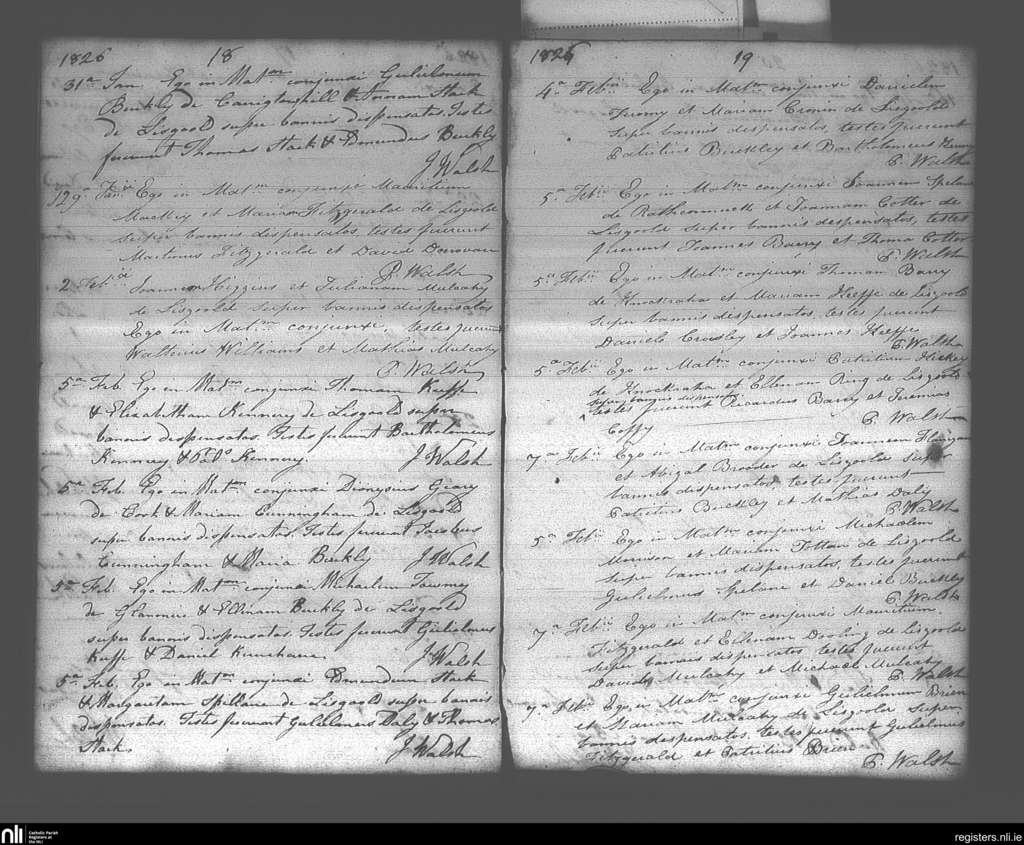 1826 18
31a Jan Ego in Matm conjunxi Gulielmum
Buckly de Carrigtouhill & Annam Stack
de Lisgoold super bannis dispensatas. Testes
fuerunt Thomas Stack & Edmundus Buckly
J Walsh
29a Ego in Matm conjunxi Mauritium
Mackey et Mariam Fitzgerald de Lisgoold
super bannis dispensatos, testes fuerunt
Martinus Fitzgerald et David Donovan
P. Walsh
2 Febii Joannem Higgens et Julianam Mulcahy
de Lisgoold super bannis dispensatos
Ego in Matm conjunxi, testes fuerunt
Walterius Williams et Mathias Mulcahy
P. Walsh
5a Feb. Ego in Matm conjunxi Thomam Keeffe
& Elizabetham Kennery de Lisgoold super
bannis dispensatos. Testes fuerunt Bartholomeus
Kennery & Kennery. J Walsh
5a Feb. Ego in Matm conjunxi Dionysius Geary
de Cork & Mariam Cunningham de Lisgoold
super bannis dispensatos. Testes fuerunt Jacobus
Cunningham & Maria Buckly J Walsh
5a Feb. Ego in Matm conjunxi Michaelem Twomey
de Glanmire & Ellenam Buckly de Lisgoold
super bannis dispensatos. Testes fuerunt Gulielmus
Keeffe & Daniel J Walsh
5a Feb. Ego in Matm conjunxi Edmundum Stack
& Margaretam Spillane de Lisgoold super bannis
dispensatos. Testes fuerunt Gulielmus Daly & Thomas
Stack J Walsh
1826 19
4a Febii Ego in Matm conjunxi Danielem
et Mariam Cronin de Lisgoold
super bannis dispensatos, testes fuerunt
Patritius Buckley et Bartholomeus
P. Walsh
5a Febii Ego in Matm conjunxi Joannem Spelane
de et Joannam Cotter de
Lisgoold super bannis dispensatos, testes
fuerunt Joannes Barry et Thoma Cotter
P. Walsh
5a Febii Ego in Matm conjunxi Thomam Barry
de Knockraha et Mariam Keeffe de Lisgoold
super bannis dispensatos, testes fuerunt
Daniele Crowley et Joannes Keeffe
P. Walsh
5a Febii Ego in Matm conjunxi Patritium Hickey
de Knockraha et Ellenam Ring de Lisgoold
super bannis dispensatos
testes fuerunt Ricardus Barry et Jeremias
Coffy P. Walsh
7a Febii Ego in Matm conjunxi Joannem Flanigan
et Abigal Broader de Lisgoold super
bannis dispensatos, testes fuerunt
Patritius Buckley et Mathias Daly
P. Walsh
5a Febii Ego in Matm conjunxi Michaelem
Morrison et Mariam Totton de Lisgoold
super bannis dispensatos, testes fuerunt
Gulielmus Spelane et Daniel Buckley
P. Walsh
7a Febii Ego in Matm conjunxi Mauritium
Fitzgerald et Ellenam Dooling de Lisgoold
super bannis dispensatos testes fuerunt
David Mulcahy et Michael Mulcahy
P. Walsh
7a Febii Ego in Matm conjunxi Gulielmum Brien
et Mariam Mulcahy de Lisgoold super
bannis dispensatos, testes fuerunt Gulielmus
Fitzgerald et Patritius Brien
P. Walsh
nli Catholic Parish Registers at the NLI
registers.nli.ie